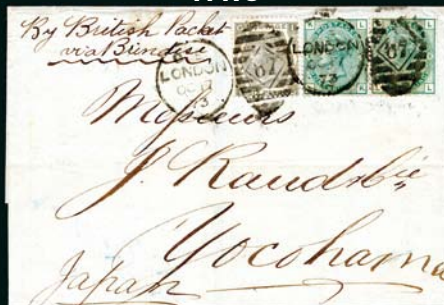 By British Packet
via Brindisi
LONDON
OC 17
73
67
LONDON
73
67
Messieurs
J. Rand & Cie
Yocohama
Japan